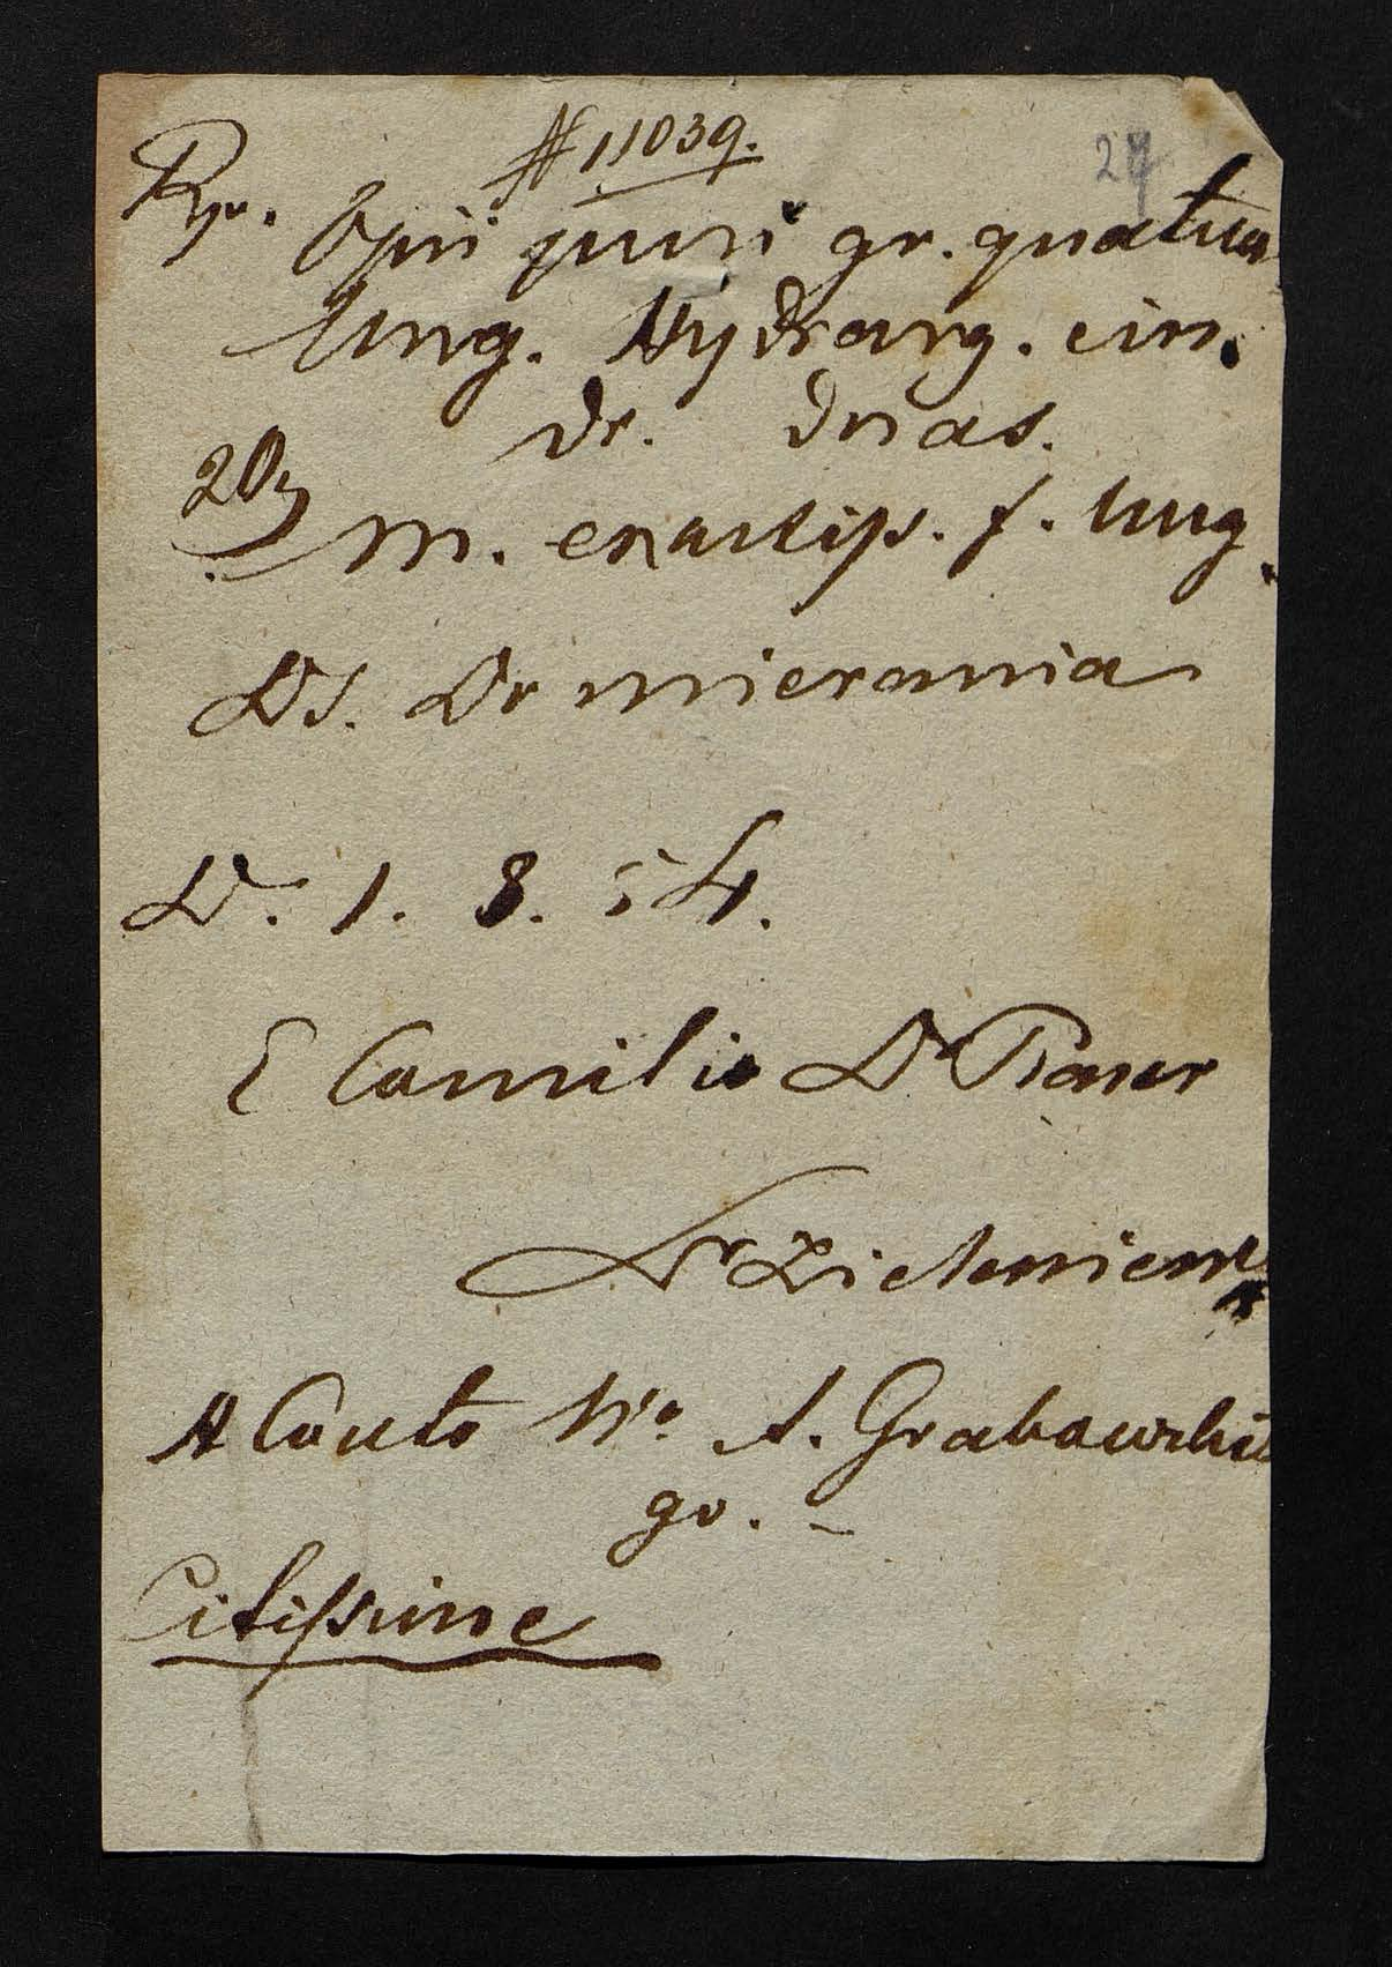 N 11039.
27
Rp. Opii puri gr. quatuor
Ung. Hydrarg. cin.
dr. duas.
20
m. exactiss. f. Ung.
DS. Do smierania
D. 1. 8. 54.
E Camilio Dr
Dr
A Conto Wo A. Grabowskie
go. –
Citissime